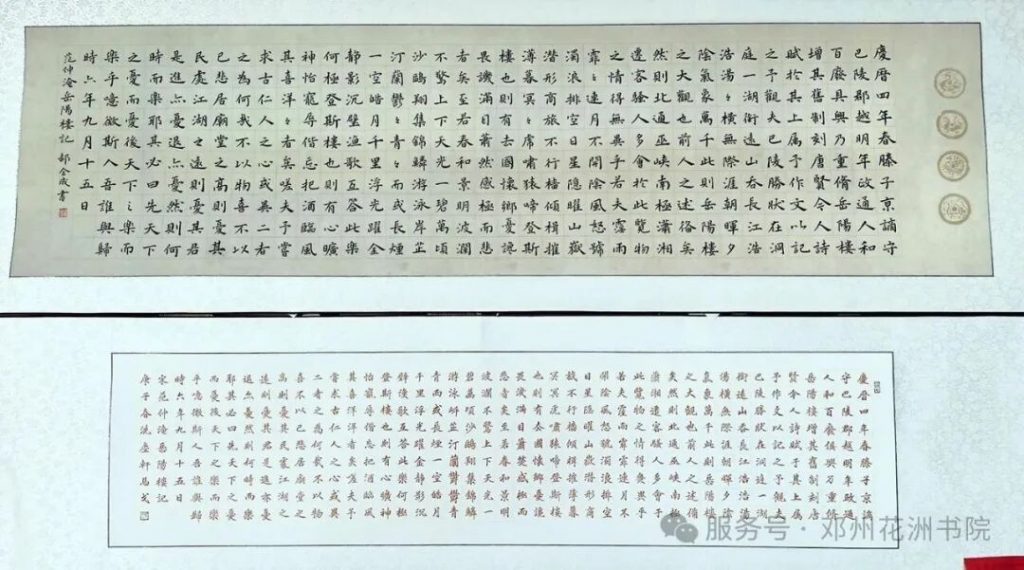 慶曆四年春滕子京謫守
巴陵郡越明年政通人和
百廢具興乃重脩岳陽樓
增其舊制刻唐賢令人詩
賦於其上属予作文以記
之予觀夫巴陵勝狀在洞
庭一湖銜遠山吞長江浩
浩湯々橫無際涯朝暉夕
陰氣象萬千此則岳陽樓
之大觀也前人之述俻矣
然則北通巫峽南極瀟湘
遷客騷人多會於此覽物
之情得無異乎若夫霪雨
霏々連月不開陰風怒號
濁浪排空日星隱曜山嶽
潛形商旅不行檣傾楫摧
薄暮冥々虎嘯猿啼登斯
樓也則有去國懷鄉憂讒
畏譏滿目蕭然感極而悲
者矣至若春和景明波瀾
不驚上下天光一碧萬頃
沙鷗翔集錦鱗游泳岸芷
汀蘭鬱々青々而或長煙
一空皓月千里浮光躍金
靜影沉璧漁歌互答此樂
何極登斯樓也則有心曠
神怡寵辱偕忘把酒臨風
其喜洋々者矣嗟夫予嘗
求古仁人之心或異二者
之為何哉不以物喜不以
己悲居廟堂之高則憂其
民處江湖之遠則憂其君
是進亦憂退亦憂然則何
時而樂耶其必曰先天下
之憂而憂後天下之樂而
樂乎噫微斯人吾誰與歸
時六年九月十五日
范仲淹岳陽樓記 郝全成書
慶曆四年春滕子京謫
守巴陵郡越明年政通
人和百廢俱興乃重修
岳陽樓增其舊制刻唐
賢今人詩賦于其上属
予作文以記之予觀夫
巴陵勝狀在洞庭一湖
銜遠山吞長江浩浩湯
湯橫無際涯朝暉夕陰
氣象萬千此則岳陽樓
之大觀也前人之述備
矣然則北通巫峽南極
瀟湘遷客騷人多會于
此覽物之情得無異乎
若夫霪雨霏霏連月不
開陰風怒號濁浪排空
日星隱曜山嶽潛形商
旅不行檣傾楫摧薄暮
冥冥虎嘯猿啼登斯樓
也則有去國懷鄉憂讒
畏譏滿目蕭然感極而
悲者矣至若春和景明
波瀾不驚上下天光一
碧萬頃沙鷗翔集錦鱗
游泳岸芷汀蘭鬱鬱青
青而或長煙一空皓月
千里浮光躍金靜影沉
璧漁歌互答此樂何極
登斯樓也則有心曠神
怡寵辱偕忘把酒臨風
其喜洋洋者矣嗟夫予
嘗求古仁人之心或異
二者之為何哉不以物
喜不以己悲居廟堂之
高則憂其民處江湖之
遠則憂其君是進亦憂
退亦憂然則何時而樂
耶其必曰先天下之憂
而憂後天下之樂而樂
乎噫微斯人吾誰與歸
時六年九月十五日
宋范仲淹岳陽樓記
庚子春洗塵軒馬戈
服务号 · 邓州花洲书院